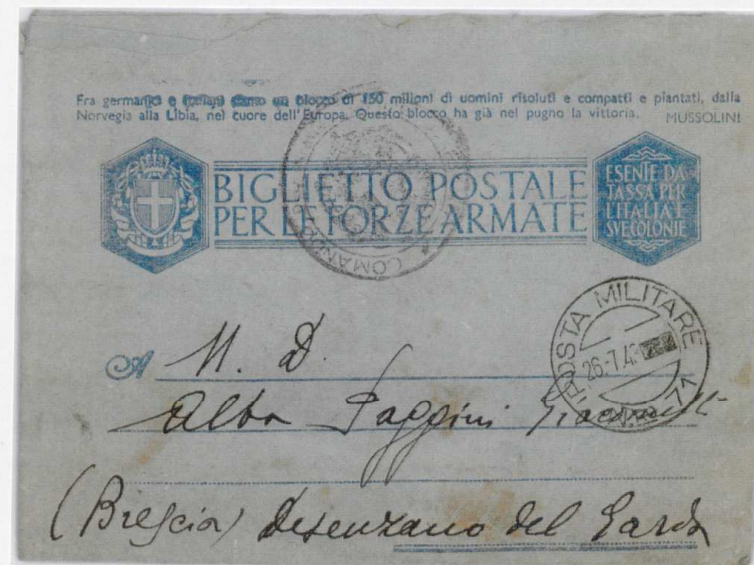 Fra germanici e italiani siamo un blocco di 150 milioni di uomini risoluti e compatti e piantati, dalla
Norvegia alla Libia, nel cuore dell'Europa. Questo blocco ha già nel pugno la vittoria. MUSSOLINI
BIGLIETTO POSTALE
PER LE FORZE ARMATE
ESENTE DA
TASSA PER
L'ITALIA E
SVE COLONIE
COMANDO
POSTA MILITARE
26.7.42
N. 71
A N. D.
Alba Paggini
(Brescia) Desenzano del Garda